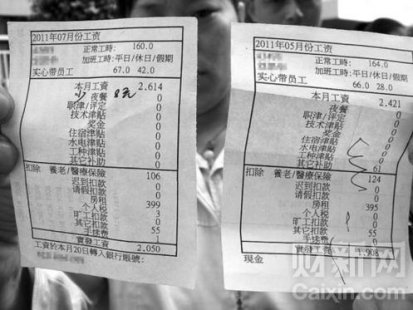 2011年07月份工资
正常工時: 160.0
加班工時:平日/休日/假期
实心带员工 67.0 42.0
本月工資 2,614
夜餐 0
职津/评定 0
技术津贴 0
奖金 0
住宿津贴 0
水电津贴 0
工种津贴 0
其它补助 0
扣除 養老/醫療保險 106
迟到扣款 0
请假扣款 0
房租 399
个人税 3
旷工扣款 0
其它扣款 55
手续费 1
實發工資 2,050
工資於本月20日轉入銀行賬號:
2011年05月份工资
正常工時: 164.0
加班工時:平日/休日/假期
实心带员工 66.0 28.0
本月工資 2,421
夜餐 0
职津/评定 0
技术津贴 0
奖金 0
住宿津贴 0
水电津贴 0
工种津贴 0
其它补助 61
扣除 養老/醫療保險 124
迟到扣款 0
请假扣款 0
房租 395
个人税 0
旷工扣款 0
其它扣款 55
手续费 0
實發工資 1,908
現金
财新网
Caixin.com